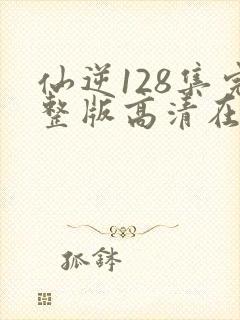 仙逆128集完
整版高清在
孤鉢